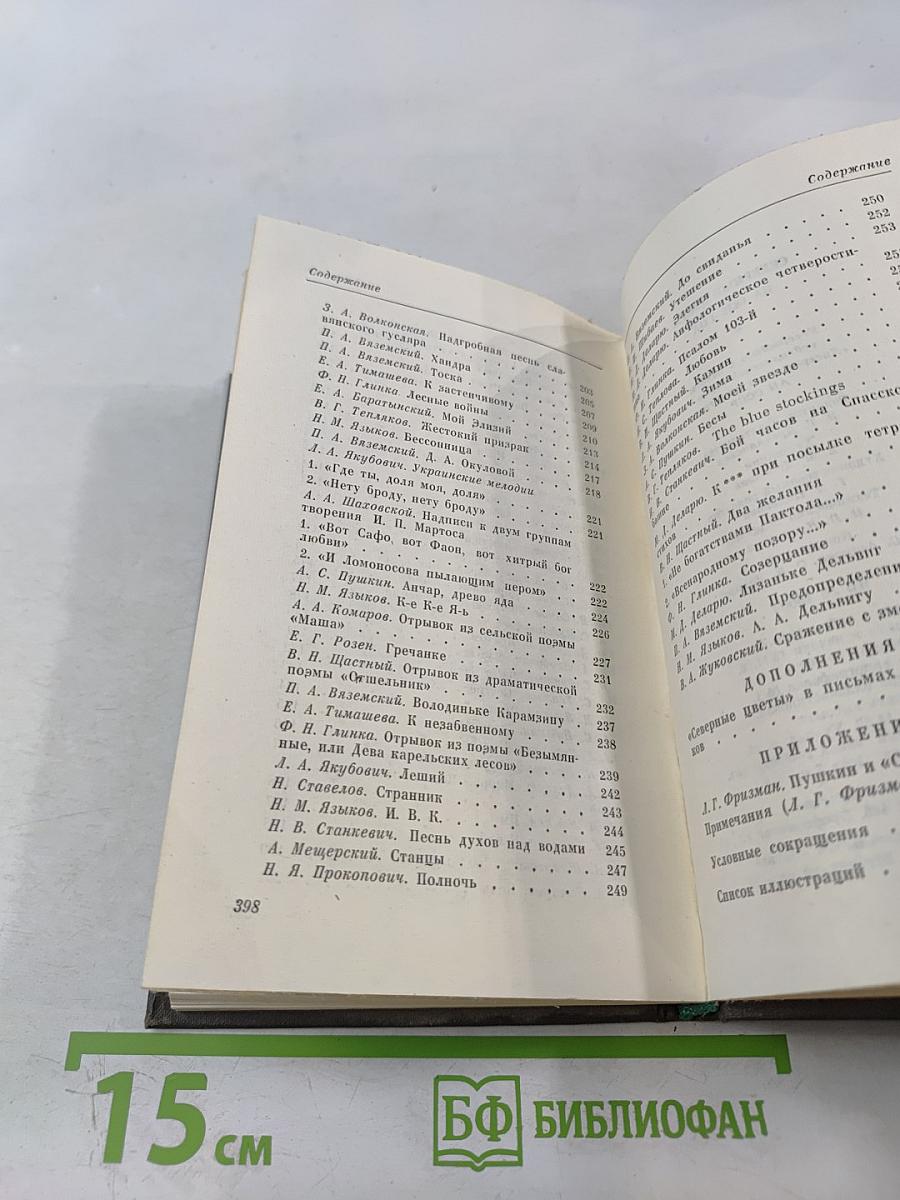 Содержание
З. А. Волконская. Надгробная песнь сла-
вянского гусляра . . . . . . . 203
П. А. Вяземский. Хандра . . . . . . 205
П. А. Вяземский. Тоска . . . . . . 207
Е. А. Тимашева. К застенчивому . . . . 209
Ф. Н. Глинка. Лесные войны . . . . 210
Е. А. Баратынский. Мой Элизий . . . . 213
В. Г. Тепляков. Жестокий призрак . . . 214
Н. М. Языков. Бессонница . . . . . 217
П. А. Вяземский. Д. А. Окуловой . . . . 218
Л. А. Якубович. Украинские мелодии
1. «Где ты, доля моя, доля» . . . . 221
2. «Нету броду, нету броду» . . . . 221
А. А. Шаховской. Надписи к двум группам
творения И. П. Мартоса
1. «Вот Сафо, вот Фаон, вот хитрый бог
любви» . . . . . . . . . 222
2. «И Ломоносова пылающим пером» . . 222
А. С. Пушкин. Анчар, древо яда . . . . 224
Н. М. Языков. К-е К-е Я-ь . . . . . 226
А. А. Комаров. Отрывок из сельской поэмы
«Маша» . . . . . . . . . 227
Е. Г. Розен. Гречанке . . . . . . . 231
В. Н. Щастный. Отрывок из драматической
поэмы «Отшельник» . . . . . . 232
П. А. Вяземский. Володиньке Карамзину 237
Е. А. Тимашева. К незабвенному . . . . 238
Ф. Н. Глинка. Отрывок из поэмы «Безымян-
ные, или Дева карельских лесов» . . . 239
Л. А. Якубович. Леший . . . . . . 242
Н. Ставелов. Странник . . . . . . . 243
Н. М. Языков. И. В. К. . . . . . . 244
Н. В. Станкевич. Песнь духов над водами 245
А. Мещерский. Станцы . . . . . . . 247
Н. Я. Прокопович. Полночь . . . . . . 249
398
Содержание
Вяземский. До свиданья . . . . . 250
Шибаев. Утешение . . . . . . . 252
Деларю. Элегия . . . . . . . 253
Деларю. Анфологическое четверости-
Глинка. Псалом 103-й
Теплова. Любовь
Щастный. Камин
Якубович. Зима
Волконская. Моей звезде
А. С. Пушкин. Бесы
В. Г. Тепляков. The blue stockings
Н. В. Станкевич. Бой часов на Спасско
башне
М. Д. Деларю. К *** при посылке тетр
стихов
В. Н. Щастный. Два желания
1. «Не богатствами Пактола...»
2. «Всенародному позору...»
Ф. Н. Глинка. Созерцание
М. Д. Деларю. Лизаньке Дельвиг
П. А. Вяземский. Предопределени
Н. М. Языков. А. А. Дельвигу
В. А. Жуковский. Сражение с зме
ДОПОЛНЕНИЯ
«Северные цветы» в письмах
ков
ПРИЛОЖЕНИ
Л. Г. Фризман. Пушкин и «С
Примечания (Л. Г. Фризм
Условные сокращения
Список иллюстраций
15 см
БФ БИБЛИОФАН